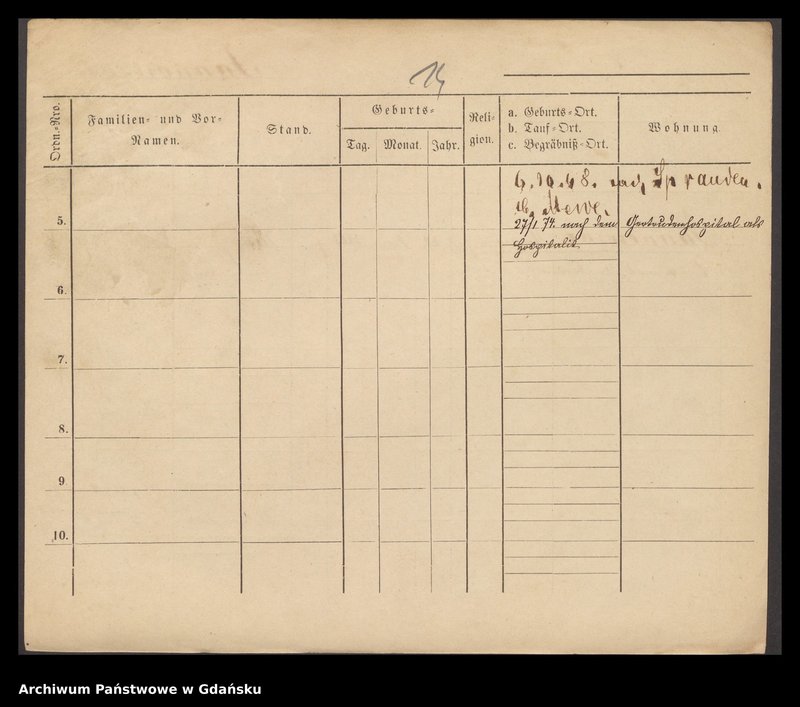 14
Ordn.-Nro.
Familien- und Vor-
Namen.
Stand.
Geburts-
Tag. Monat. Jahr.
Reli-
gion.
a. Geburts-Ort.
b. Tauf-Ort.
c. Begräbniß-Ort.
Wohnung
6.10.68. nach Sprauden.
Mewe.
27/1 74. nach dem Gertrudenhospital als
Hospitalit.
5.
6.
7.
8.
9
10.
Archiwum Państwowe w Gdańsku